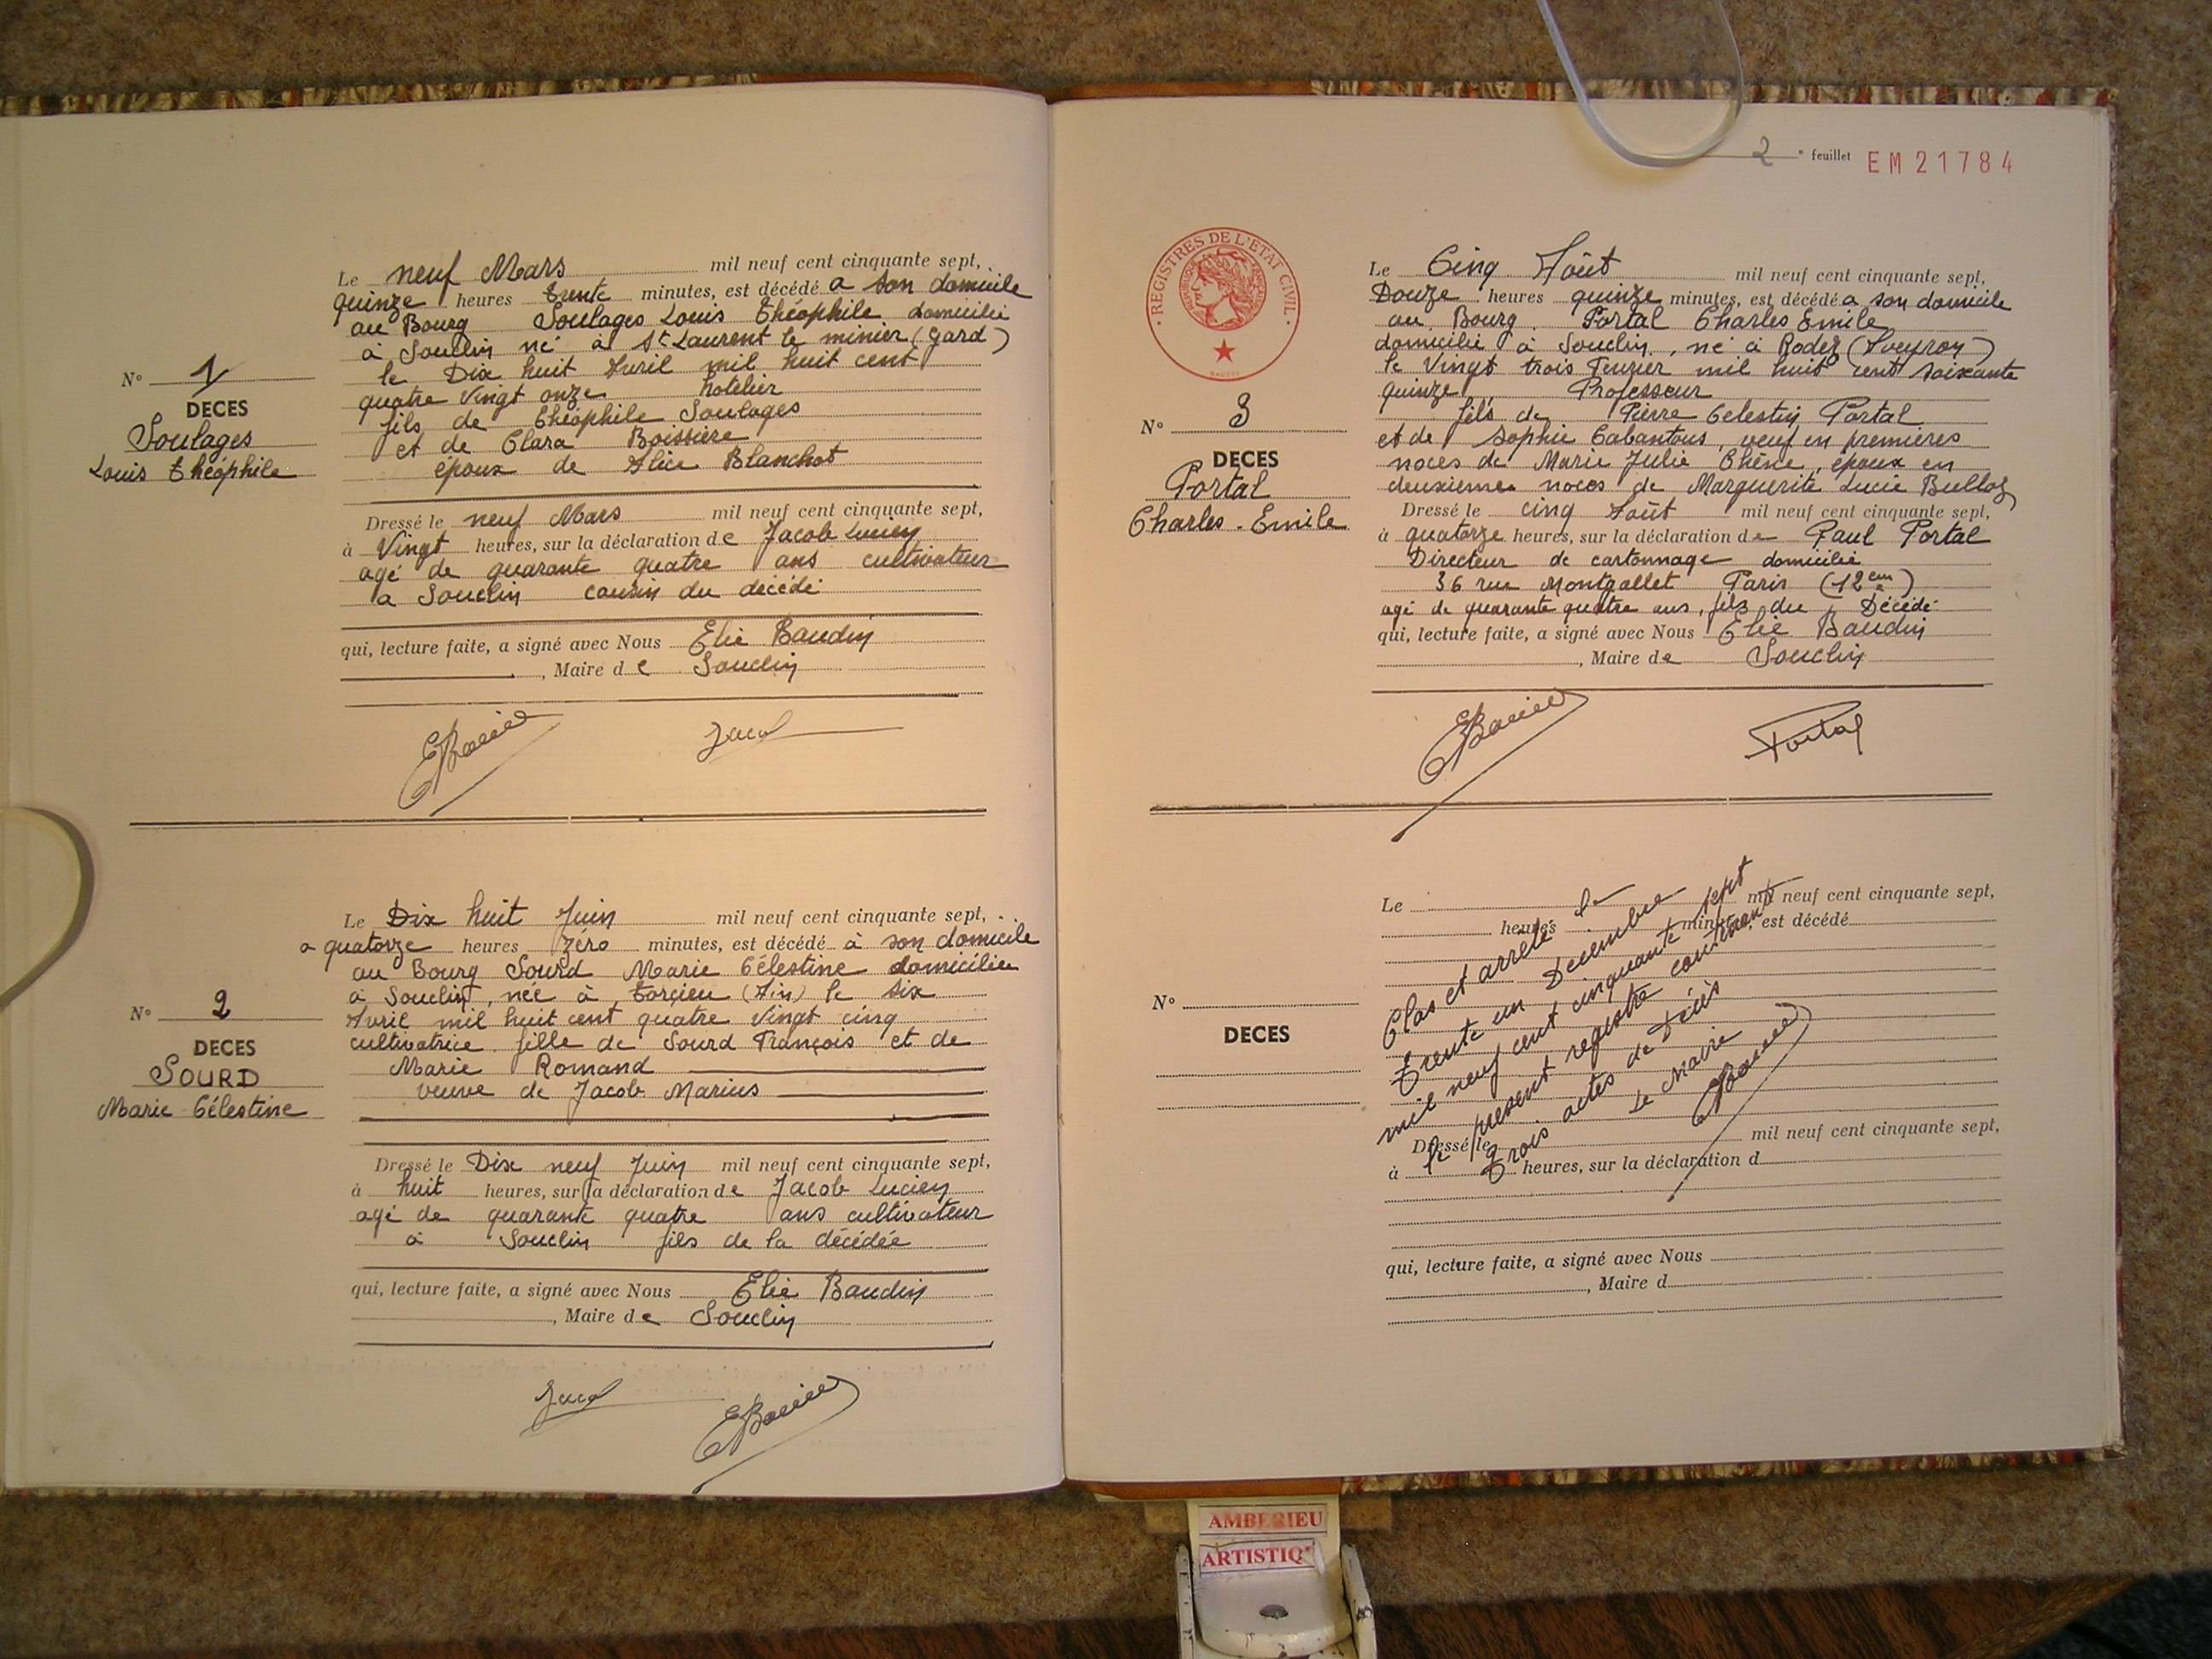 Le neuf Mars mil neuf cent cinquante sept,
quinze heures trente minutes, est décédé a son domicile
au Bourg Soulages Louis Théophile domicilié
à Souclin né à St Laurent le minier (Gard)
le Dix huit Avril mil huit cent
quatre vingt onze hotelier
fils de Théophile Soulages
et de Clara Boissière
époux de Alice Blanchot
N° 1
DECES
Soulages
Louis Théophile
Dressé le neuf Mars mil neuf cent cinquante sept,
à Vingt heures, sur la déclaration de Jacob Lucien
agé de quarante quatre ans cultivateur
a Souclin cousin du décédé
qui, lecture faite, a signé avec Nous Elie Baudin
, Maire de Souclin
EBaudin Jacob
Le Dix huit Juin mil neuf cent cinquante sept,
a quatorze heures zéro minutes, est décédé à son domicile
au Bourg Sourd Marie Célestine domiciliée
à Souclin, née à Torcieu (Ain) le six
Avril mil huit cent quatre vingt cinq
cultivatrice fille de Sourd François et de
Marie Romand
veuve de Jacob Marius
N° 2
DECES
SOURD
Marie Célestine
Dressé le Dix neuf Juin mil neuf cent cinquante sept,
à huit heures, sur la déclaration de Jacob Lucien
agé de quarante quatre ans cultivateur
à Souclin fils de la décédée
qui, lecture faite, a signé avec Nous Elie Baudin
, Maire de Souclin
Jacob EBaudin
2 e feuillet EM21784
REGISTRES DE L'ETAT CIVIL
Le Cinq Août mil neuf cent cinquante sept,
Douze heures quinze minutes, est décédé a son domicile
au Bourg. Portal Charles Emile
domicilié à Souclin, né à Rodez (Aveyron)
le Vingt trois Fevrier mil huit cent soixante
quinze Professeur
fils de Pierre Celestin Portal
et de Sophie Cabantous, veuf en premières
noces de Marie Julie Chêne, époux en
deuxiemes noces de Marguerite Lucie Bulloz
N° 3
DECES
Portal
Charles-Emile
Dressé le cinq Août mil neuf cent cinquante sept,
à quatorze heures, sur la déclaration de Paul Portal
Directeur de cartonnage domicilié
36 rue Montgallet Paris (12em)
agé de quarante quatre ans, fils du Décédé
qui, lecture faite, a signé avec Nous Elie Baudin
, Maire de Souclin
EBaudin Portal
Le mil neuf cent cinquante sept,
heures minutes, est décédé
N°
DECES
Clos et arrêté le
Trente un Decembre
mil neuf cent cinquante sept
le present registre contenant
Trois actes de Décès
Le Maire
EBaudin
Dressé le mil neuf cent cinquante sept,
à heures, sur la déclaration d
qui, lecture faite, a signé avec Nous
, Maire d
AMBERIEU
ARTISTIQ